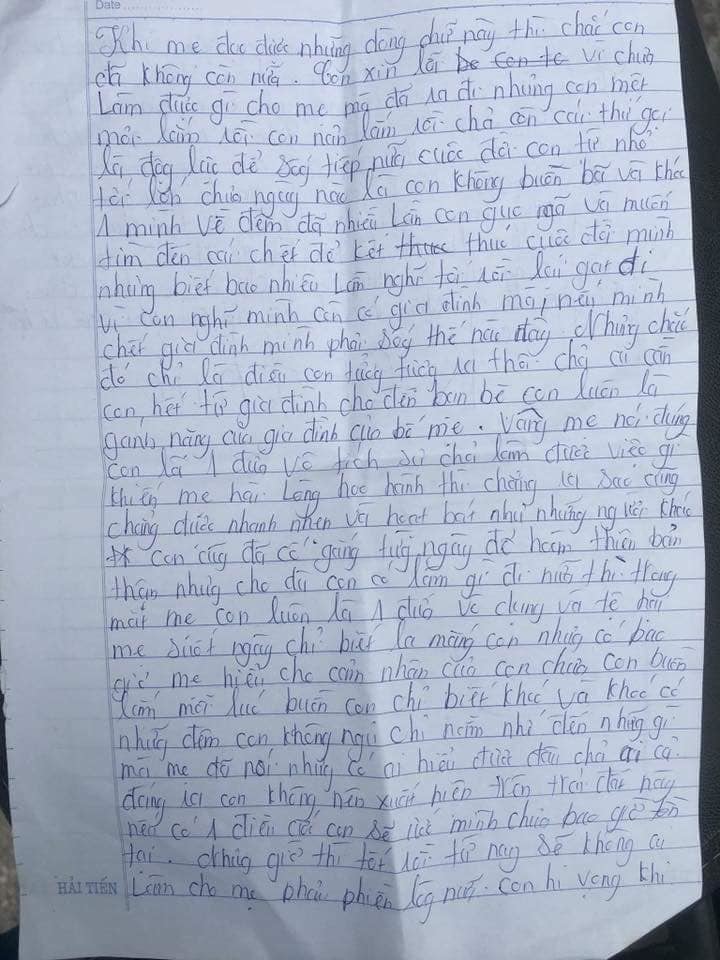 Date
Khi mẹ đọc được những dòng chữ này thì chắc con
đã không còn nữa. Con xin lỗi be con te vì chưa
làm được gì cho mẹ mà đã ra đi nhưng con mệt
mỏi lắm rồi con nản lắm rồi chả còn cái thứ gọi
là độg lực để sốg tiếp nữa cuộc đời con từ nhỏ
tới lớn chưa ngày nào là con không buồn bã và khóc
1 mình về đêm đã nhiều lần con gục ngã và muốn
tìm đến cái chết để kết thươc thúc cuộc đời mình
nhưng biết bao nhiêu lần nghĩ tới rồi lại gạt đi
vì con nghĩ mình còn có gia đình mà, nếu mình
chết gia đình mình phải sốg thế nào đây. Nhưng chắc
đó chỉ là điều con tưởng tượg ra thôi chả ai cần
con hết từ gia đình cho đến bạn bè con luôn là
gánh nặng của gia đình của bố mẹ. Vâng mẹ nói đúng
con là 1 đứa vô tích sự chả làm được việc gì
khiến mẹ hài lòng học hành thì chẳng ra sao cũng
chẳng được nhanh nhẹn và hoạt bát như những người khác
con cũg đã cố gắng từg ngày để hoàn thiện bản
thân nhưg cho dù con có làm gì đi nữa thì trong
mắt mẹ con luôn là 1 đứa vô dụng và tệ hại
mẹ suốt ngày chỉ biết la mắng con nhưg có bao
giờ mẹ hiểu cho cảm nhận của con chưa con buồn
lắm mỗi lúc buồn con chỉ biết khóc và khóc có
những đêm con không ngủ chỉ nằm nhớ đến nhữg gì
mà mẹ đã nói nhưg có ai hiểu được đâu chả ai cả
đáng ra con không nên xuất hiện trên trái đất này
nếu có 1 điều ước con sẽ ước mình chưa bao giờ tồn
tại. Nhưg giờ thì tốt rồi từ nay sẽ không ai
làm cho mẹ phải phiền lòg nữa. Con hi vọng khi
HẢI TIẾN